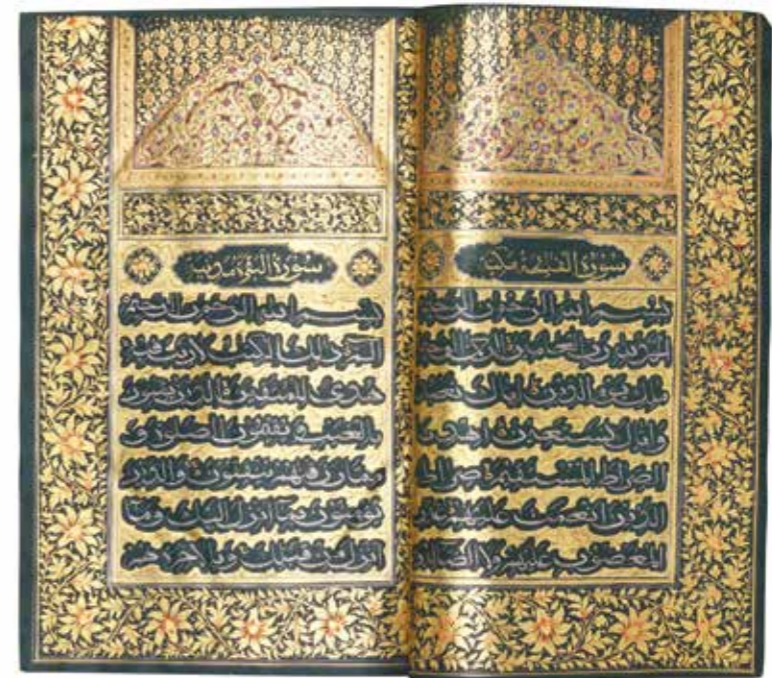 سورة الفاتحة مكية
بسم الله الرحمن الرحيم
الحمد لله رب العلمين الرحمن الرحيم
ملك يوم الدين اياك نعبد
واياك نستعين اهدنا
الصراط المستقيم صراط
الذين انعمت عليهم غير
المغضوب عليهم ولا الضالين
سورة البقرة مدنية
بسم الله الرحمن الرحيم
الم ذلك الكتب لا ريب فيه
هدى للمتقين الذين يؤمنون
بالغيب ويقيمون الصلوة و
مما رزقنهم ينفقون والذين
يؤمنون بما انزل اليك وما
انزل من قبلك وبالاخرة هم